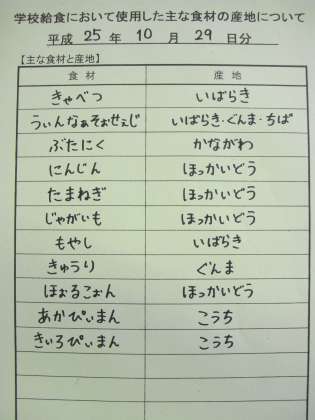 学校給食において使用した主な食材の産地について
平成 25 年 10 月 29 日分
【主な食材と産地】
食材 産地
きゃべつ いばらき
うぃんなぁそぉせぇじ いばらき・ぐんま・ちば
ぶたにく かながわ
にんじん ほっかいどう
たまねぎ ほっかいどう
じゃがいも ほっかいどう
もやし いばらき
きゅうり ぐんま
ほぉるこぉん ほっかいどう
あかぴぃまん こうち
きいろぴぃまん こうち